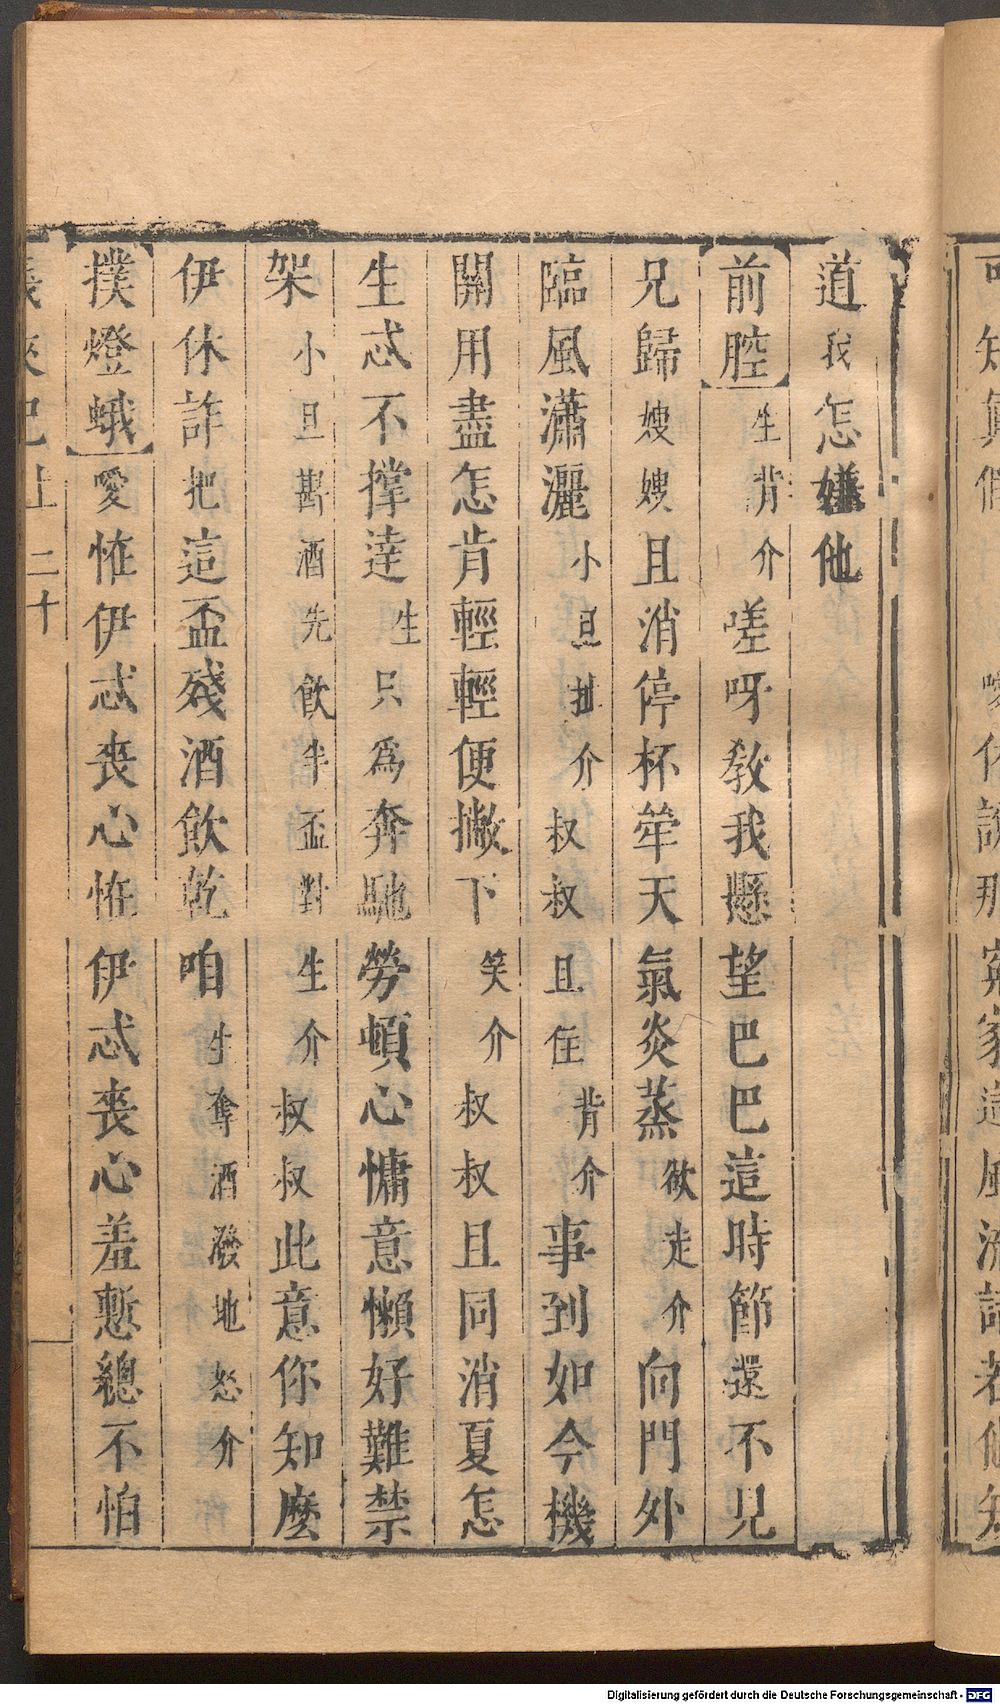 道我怎嫌他
前腔 生背介 嗟呀教我懸望巴巴這時節還不見
兄歸嫂嫂且消停杯斚天氣炎蒸欲走介向門外
臨風瀟灑小旦扯介叔叔且住背介事到如今機
關用盡怎肯輕輕便撇下笑介叔叔且同消夏怎
生忒不撑達生只爲奔馳勞頓心慵意懶好難禁
架小旦斟酒先飲半盃對生介叔叔此意你知麼
伊休詐把這盃殘酒飲乾咱生奪酒潑地怒介
撲燈蛾 愛恠伊忒喪心恠伊忒喪心羞慙總不怕
義俠記上 二十
Digitalisierung gefördert durch die Deutsche Forschungsgemeinschaft - DFG